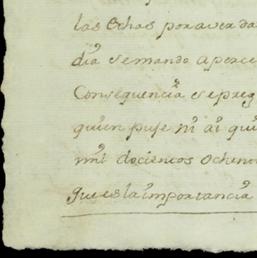 las Ochas por aver da
dia, se mando aperce
Consequencia se preg
quien puje ni ai qui
mil docientos Ochen
que es la importancia